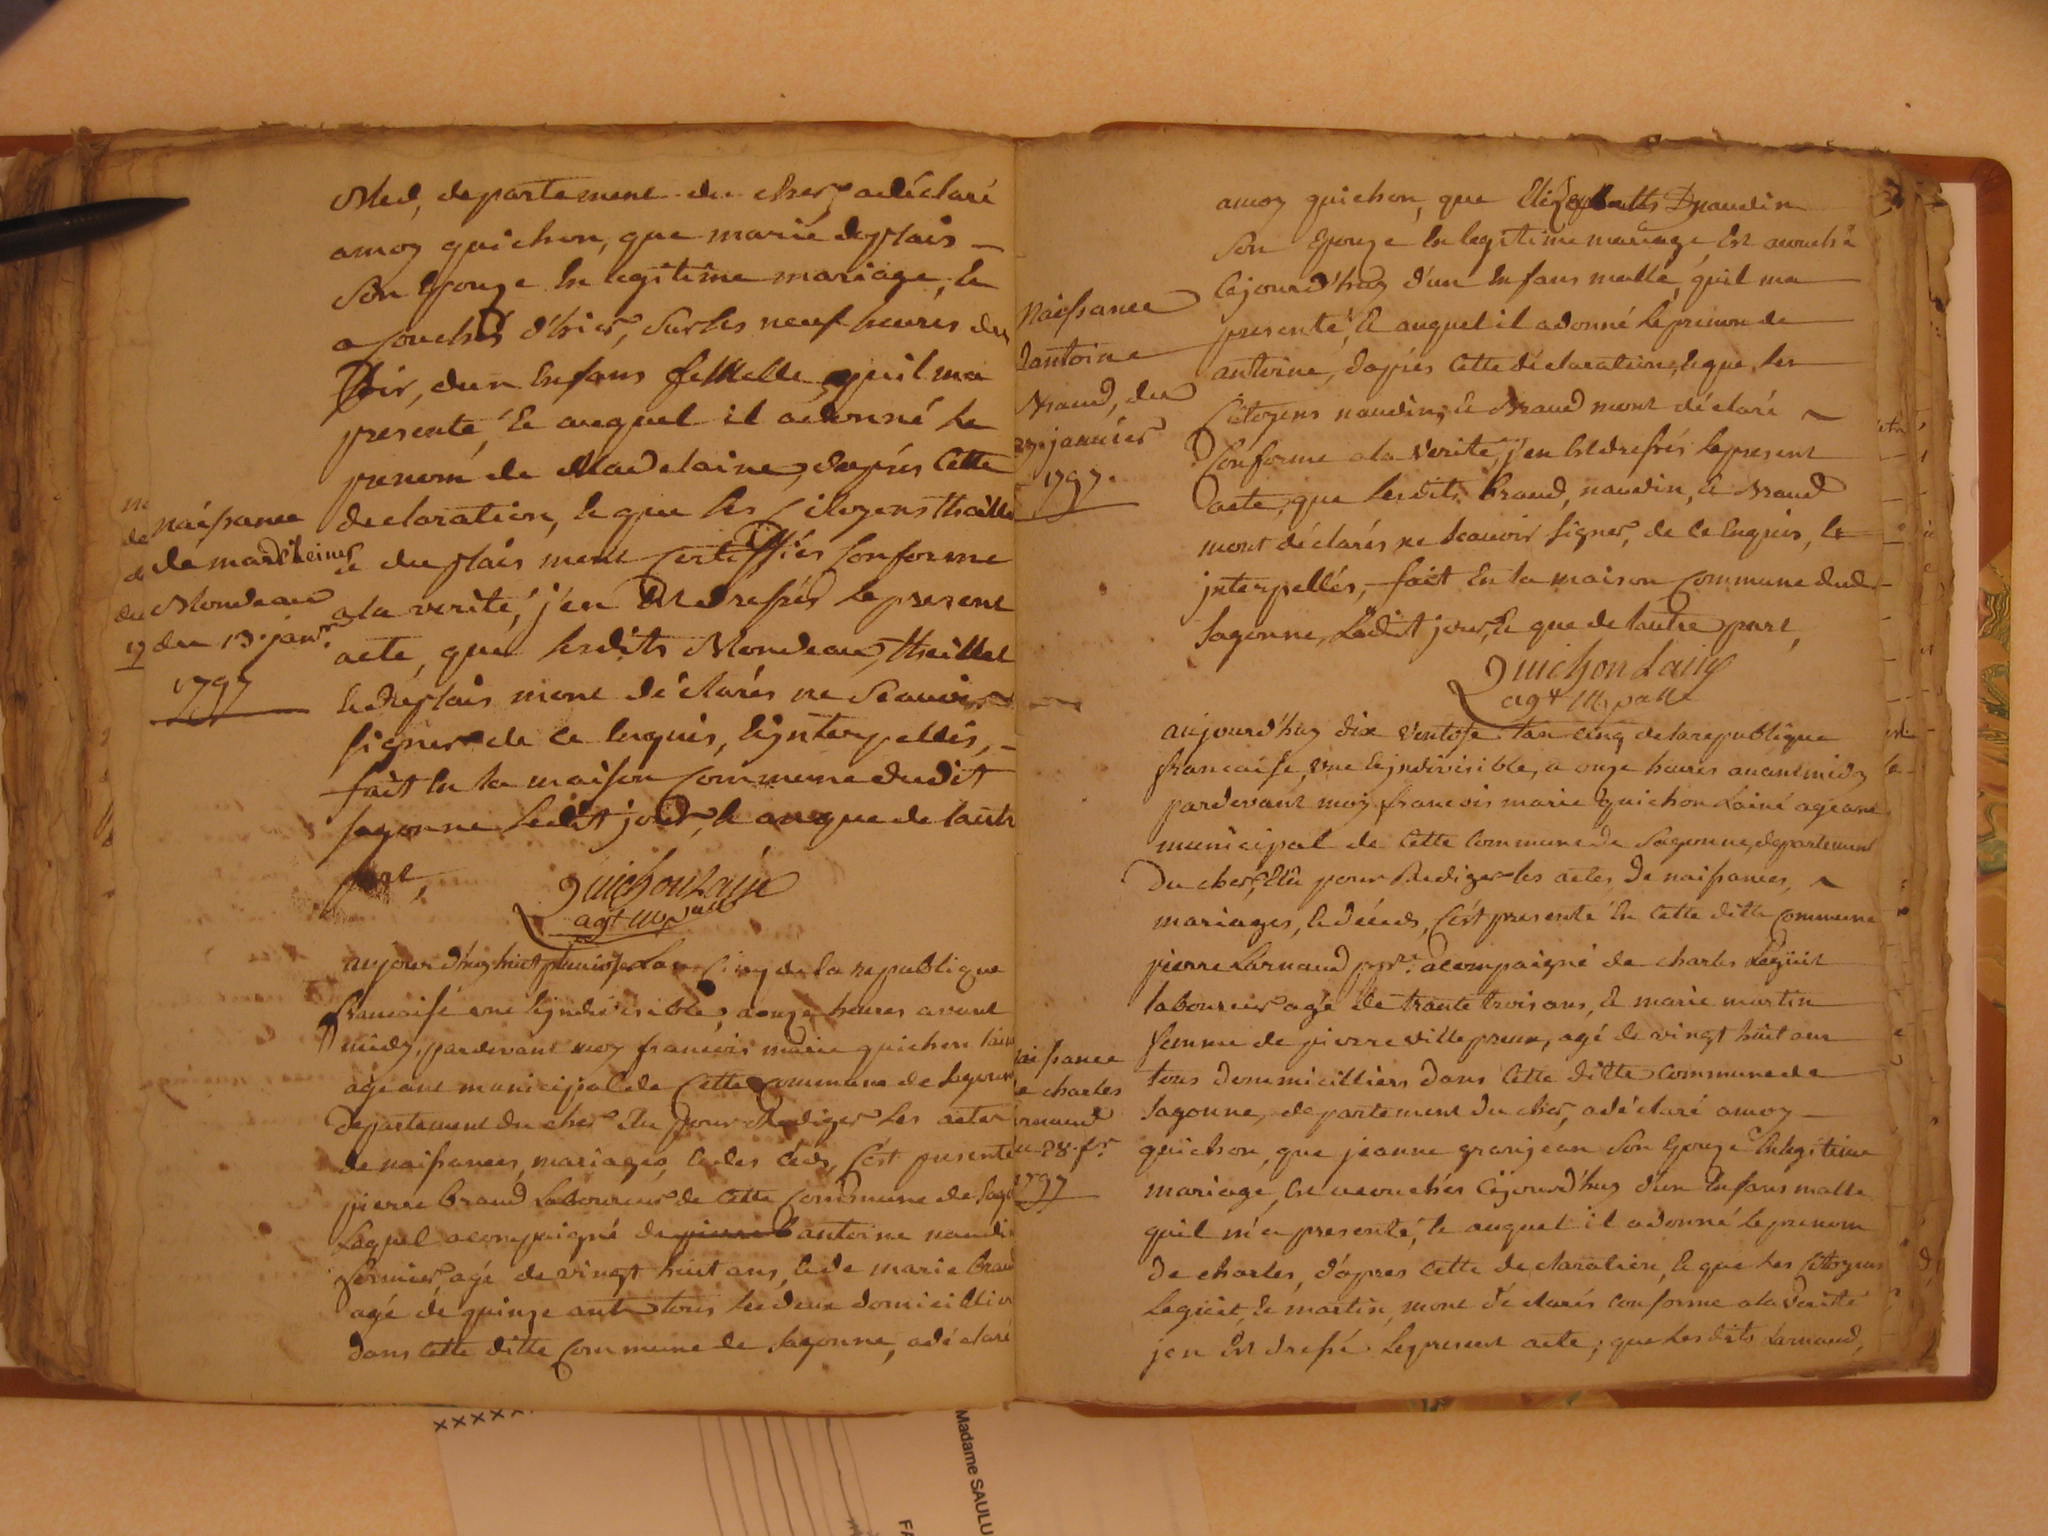 departement du cher, a déclaré
amoy guichon, que marie desplais
son Epouze En legitime mariage, Est
acouchés d'hier, sur les neuf heures du
soir, d'un Enfans femelle, quil ma
presenté, Et auquel il a donné le
prenom de Madelaine, d'aprés Cette
declaration, Et que les Citoyens theillet
Et duplais mont Certiffiés Conforme
a la verité, j'en Est dressés le present
acte, que lesdits Mondeau, theillet
Et deplais mont déclarés ne Scauoir
signer de Ce Enquis, Et jnterpellés,
fait En la maison Commune dudit
sagonne Ledit jour, Et an que de lautre
part,
Guichon Lainé
agt mpall
naissance
de mardeleine
Mondeau
du 13 janr.
1797
aujourd'huy huit pluviose Lan Cinq de la republique
francaise une Et jndivisible, a onze heures avant
midy, pardevant moy francois marie guichon lainé
ageant municipal de Cette Commune de Sagonne
departement du cher Elu pour Rediger les actes
de naissances, mariages, Et des Ceds, C'est presenté
pierre braud Laboureur de Cette Commune de Sago
Lequel acompaigné de pierre antoine naudin
fermier, agé de vingt huit ans, Et de marie braud
agé de quinze ans tous les deux domicilliers
dans Cette ditte Commune de Sagonne, a déclaré
amoy guichon, que Elizabeth Naudin
son Epouze En legitime mariage, Est acouché
Cejourd'huy d'un Enfans malle, quil ma
presenté, Et auquel il a donné le prenom de
antoine, d'aprés Cette déclaration, Et que les
Citoyens naudin, Et Braud mont déclaré
Conforme a la Verité, j'en Est dressés le present
acte, que lesdits braud, naudin, Et Braud
mont déclarés ne Scauoir signer, de Ce Enquis, Et
jnterpellés, fait En la maison Commune dud.
Sagonne, Ledit jour, Et que de lautre part,
Guichon Lainé
agt mpall
Naissance
dantoine
Braud, du
27 janvier
1797.
aujourd'huy dix Ventose lan Cinq de la republique
francaise, une Et jndivisible, a onze heures avant midy
pardevant moy francois marie guichon Lainé ageant
municipal de Cette Commune de Sagonne, departement
du cher, Elû pour Rediger les actes de naissances,
mariages, Et déceds, C'est presenté En Cette ditte Commune
pierre Larnaud acompaigné de charles Legüit
laboureur agé de trante trois ans, Et marie martin
femme de pierre villepreux, agé de vingt huit ans
tous dommicilliers dans Cette ditte Commune de
Sagonne, departement du cher, a déclaré amoy
guichon, que jeanne granjean son Epouze En legitime
mariage, Est acouchés Cejourd'huy d'un Enfans malle
quil m'a presenté, Et auquel il a donné le prenom
de charles, d'apres Cette declaration, Et que les Citoyens
Legüit, Et martin, mont déclarés Conforme a la Verité
jen Est dressé le present acte, que les dits Larnaud,
naissance
de charles
Larnaud
du 28 fr.
1797
Madame SAULU